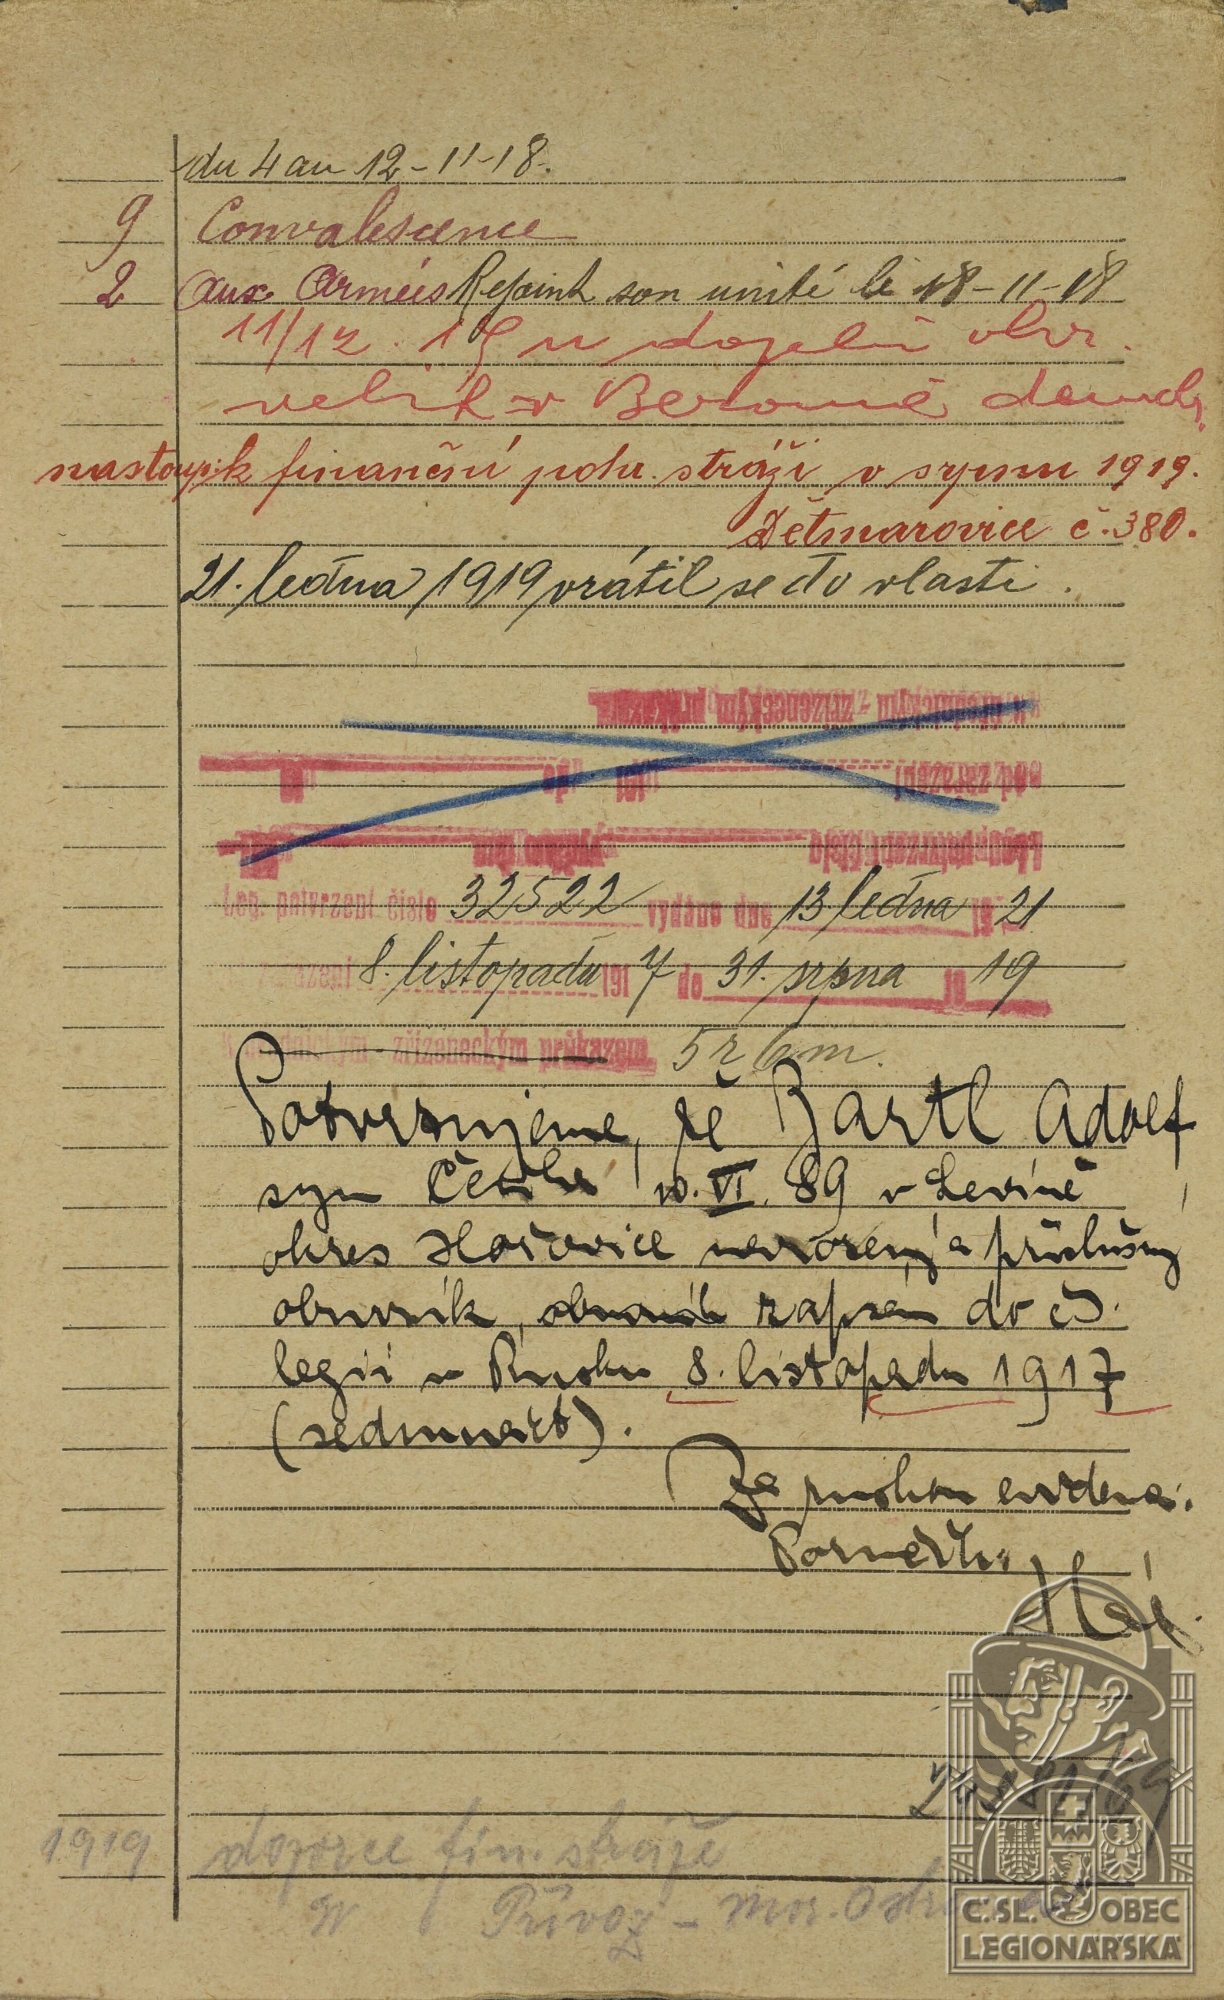 du 4 au 12-11-18.
9 Convalescence
2 aux Armées Rejoint son unité le 18-11-18
11/12. 19 u dopln okr.
velit. v Berouně
nastoup. k finanční pohr. stráži v srpnu 1919.
Dětmarovice č. 380.
21. ledna 1919 vrátil se do vlasti.
Leg. potvrzení číslo 32522 vydáno dne 13. ledna 1921
zařazení 8. listopadu 1917 do 31. srpna 1919
zřízeneckým průkazem 5 r 6 m.
Potvrzujeme, že Bartl Adolf
syn 10. VI. 89 v Levíně
okres Hořovice narozený a příslušný
obuvník, zapsán do čs.
legií v Rusku 8. listopadu 1917
(sedmnáct).
Za ruskou evidenci.
1919 dozorce fin. stráže
Přívoz - Mor. Ostrava
Č. SL. OBEC
LEGIONÁŘSKÁ